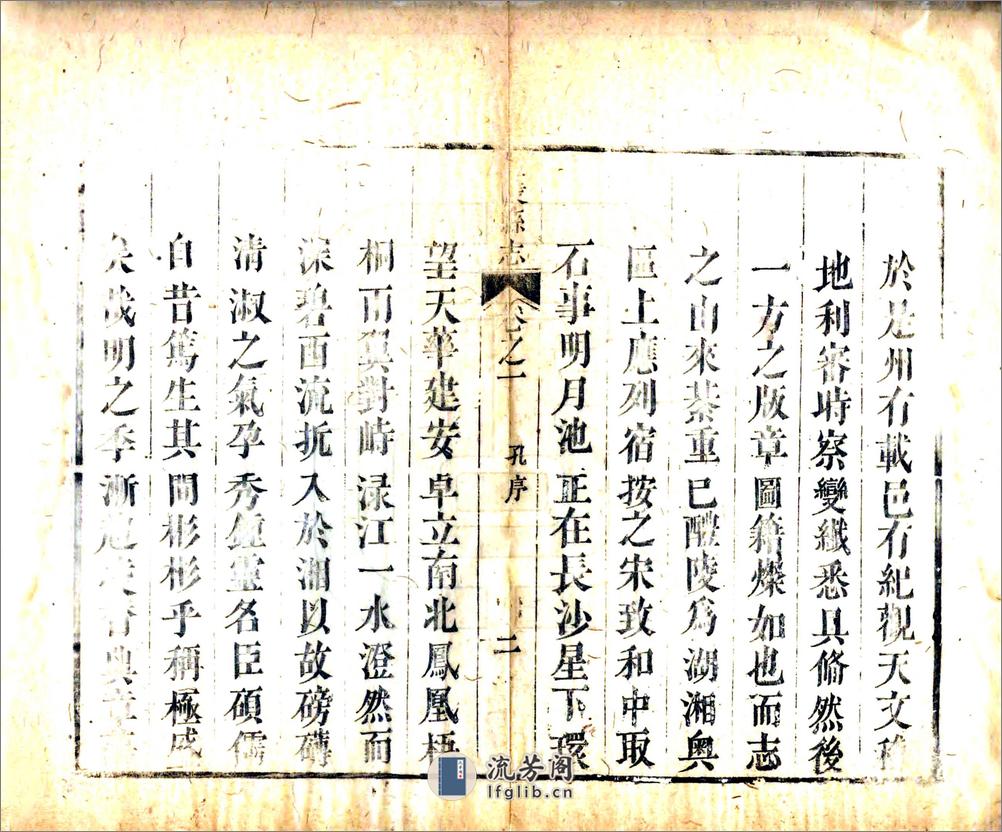 於是州有載邑有紀觀天文確
地利審時察變纖悉具脩然後
一方之版章圖籍燦如也而志
之由來綦重已醴陵爲湖湘奥
區上應列宿按之宋致和中取
石事明月池正在長沙星下環
陵縣志 卷之一 孔序 二
望天華建安卓立南北鳳凰梧
桐百翼對峙渌江一水澄然而
深碧西流折入於湘以故磅礴
清淑之氣孕秀鍾靈名臣碩儒
自昔篤生其間彬彬乎稱極盛
矣哉明之季漸 典章
流芳阁
lfglib.cn